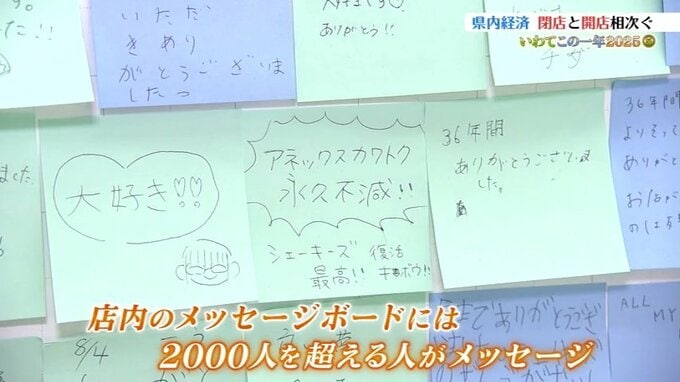 県内経済 閉店と開店相次ぐ
いわてこの一年2025
いただ
きあり
がとうございま
したっ
ありがとう!!
した!!
大好き!!
アネックスカワトク
永久不滅!!
シェーキーズ 復活
最高!! キボウ!!
36年間
ありがとうございま
した。
36年間
よりそって
ありがと
お店が
ました
8/4
ALL
MY
店内のメッセージボードには
2000人を超える人がメッセージ